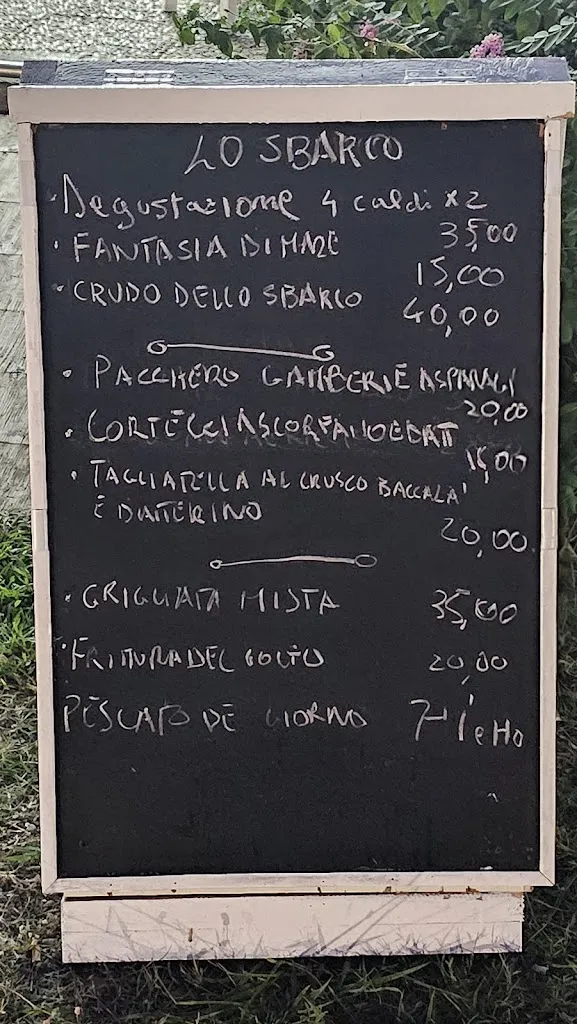 LO SBARCO
· Degustazione 4 caldi x2
35,00
· FANTASIA DI MARE
15,00
· CRUDO DELLO SBARCO
40,00
· PACCHERO GAMBERI E ASPARAGI
20,00
· CORTECCIA SCORFANO E DATT
18,00
· TAGLIATELLA AL CRUSCO BACCALA'
E DATTERINO
20,00
· GRIGLIATA MISTA 35,00
· FRITTURA DEL GOLFO 20,00
PESCATO DE GIORNO 7-l'etto